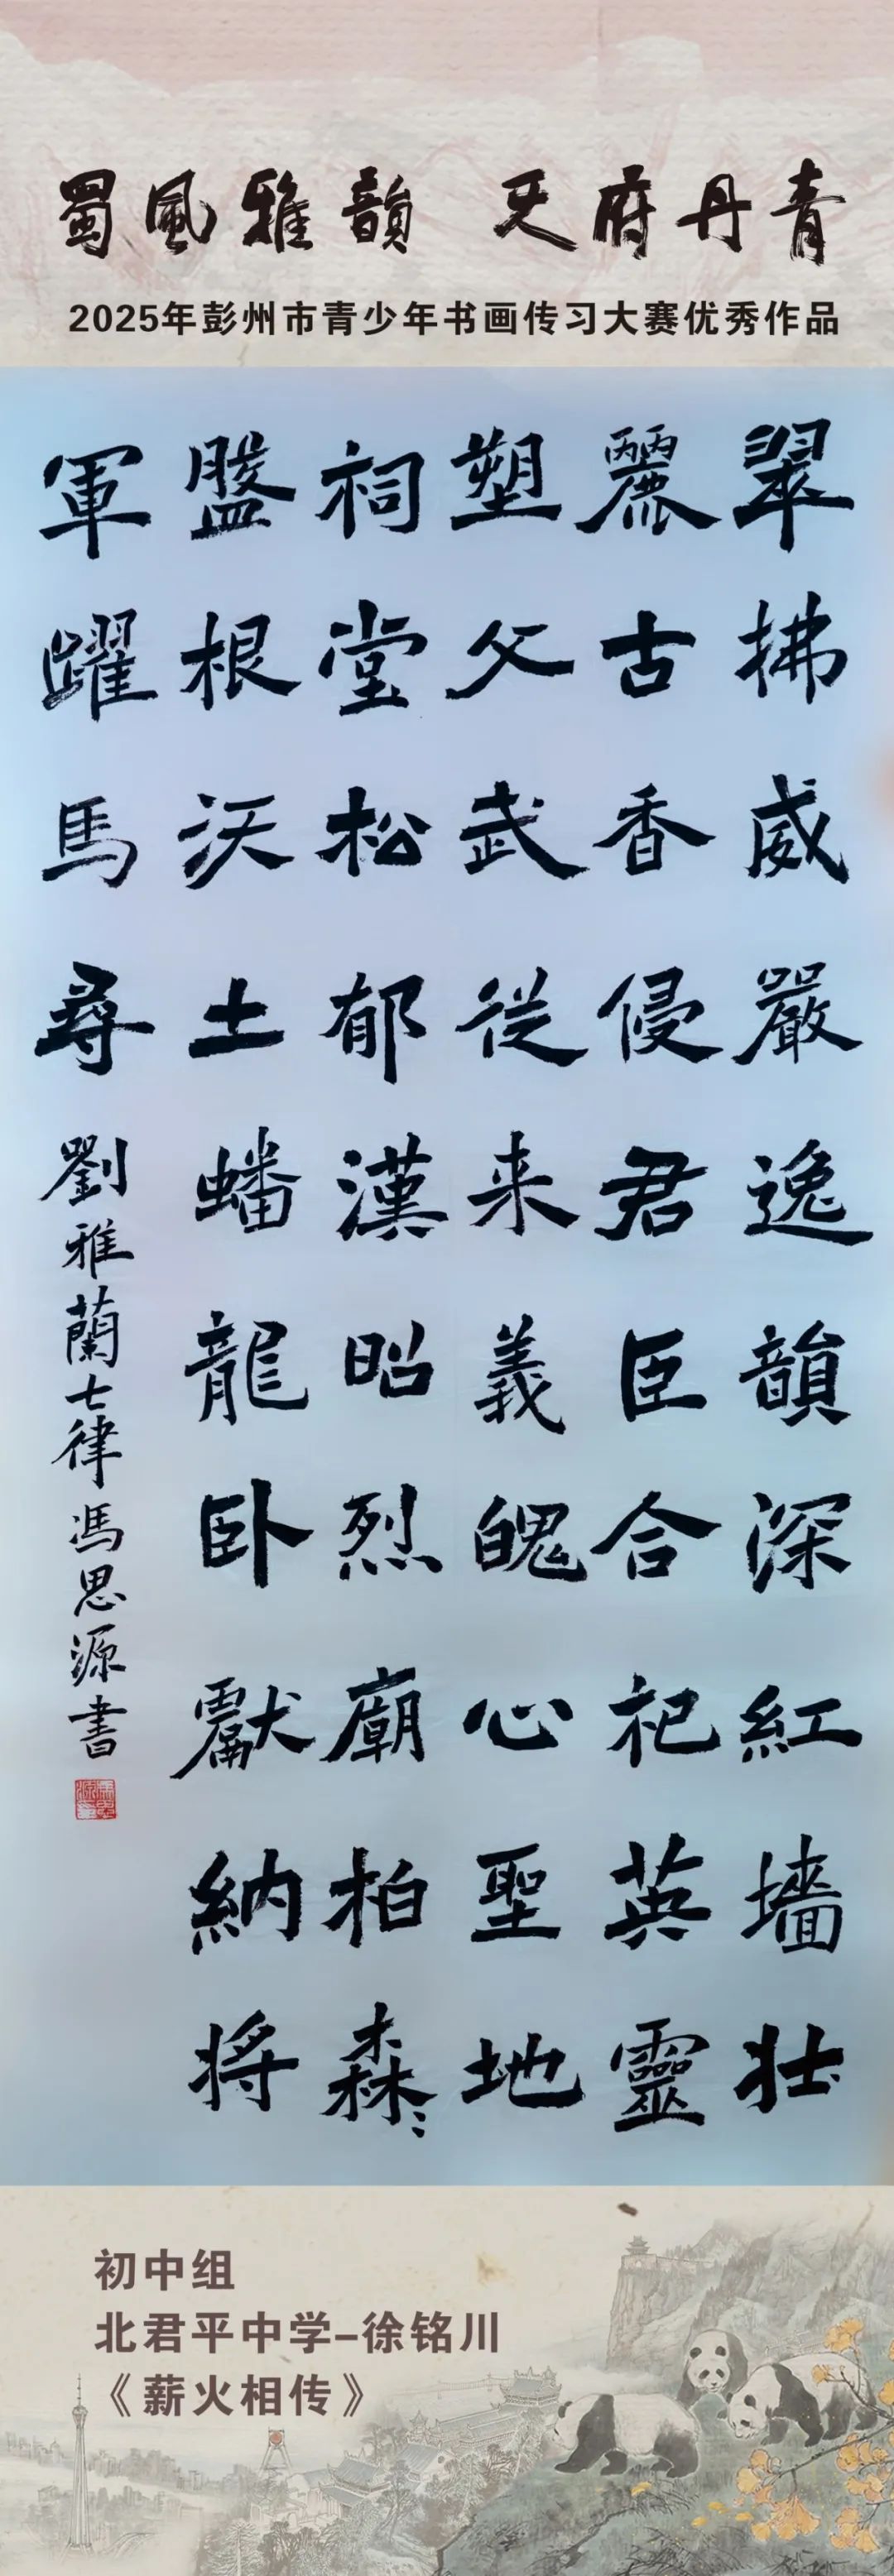 蜀風雅韻 天府丹青
2025年彭州市青少年书画传习大赛优秀作品
翠拂威嚴逸韻深紅墻壯
麗古香侵君臣合祀英靈
塑父武從来義魄心聖地
祠堂松郁漢昭烈廟柏森
盤根沃土蟠龍卧獻納将
軍躍馬尋
劉雅蘭七律馮思源書
初中组
北君平中学-徐铭川
《薪火相传》